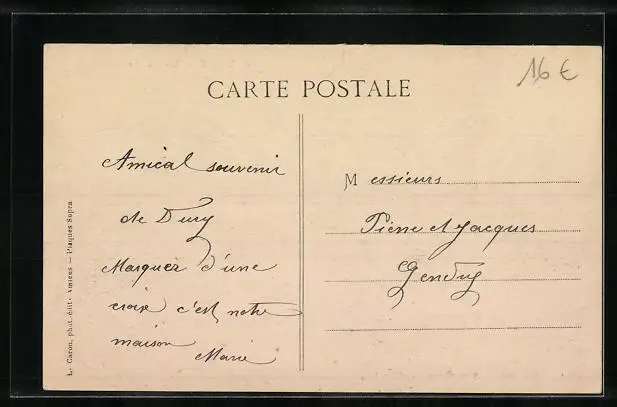 16 €
CARTE POSTALE
Amical souvenir
de Dury
Marquez d'une
croix c'est notre
maison
Marie
Messieurs
Pierre et Jacques
L. Caron, phot.-édit. Amiens — Plaques Supra